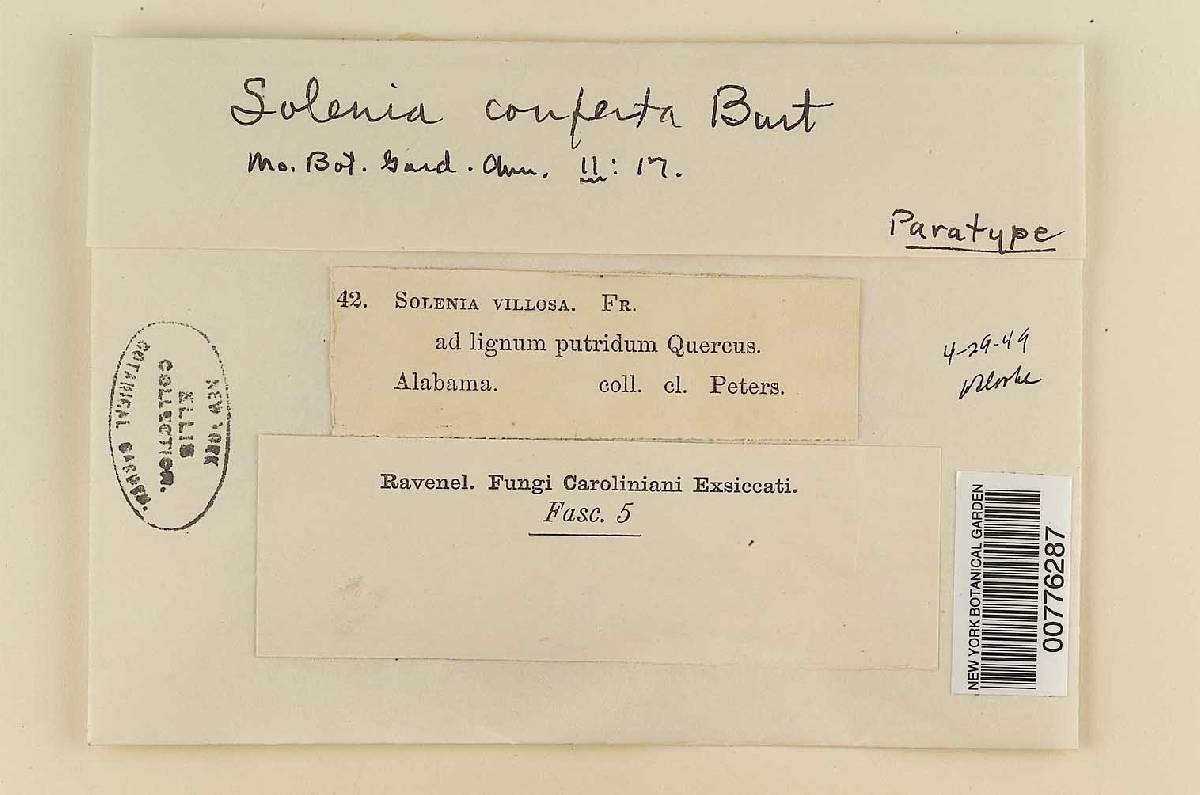 Solenia conferta Burt
Mo. Bot. Gard. Ann. 11: 17.
Paratype
42. SOLENIA VILLOSA. FR.
ad lignum putridum Quercus.
Alabama. coll. cl. Peters.
4-29-49
NEW YORK
ELLIS
COLLECTION.
BOTANICAL GARDEN
Ravenel. Fungi Caroliniani Exsiccati.
Fasc. 5
NEW YORK BOTANICAL GARDEN
00776287